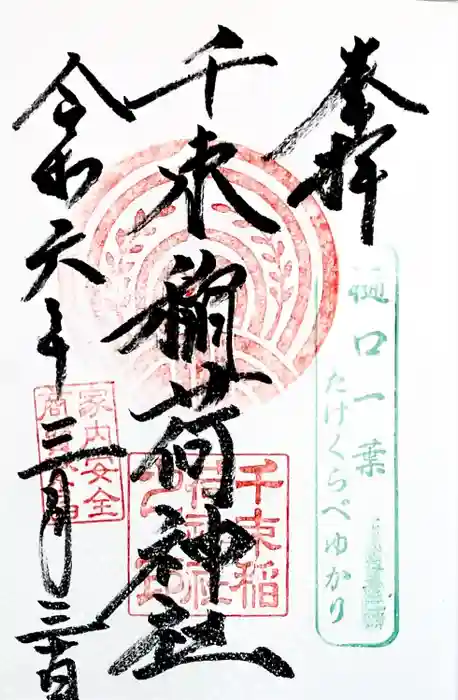 奉拝
樋口一葉
たけくらべゆかり
千束稲荷神社
千束稲
荷神社
令和六年三月三十日
家内安全
商売繁昌